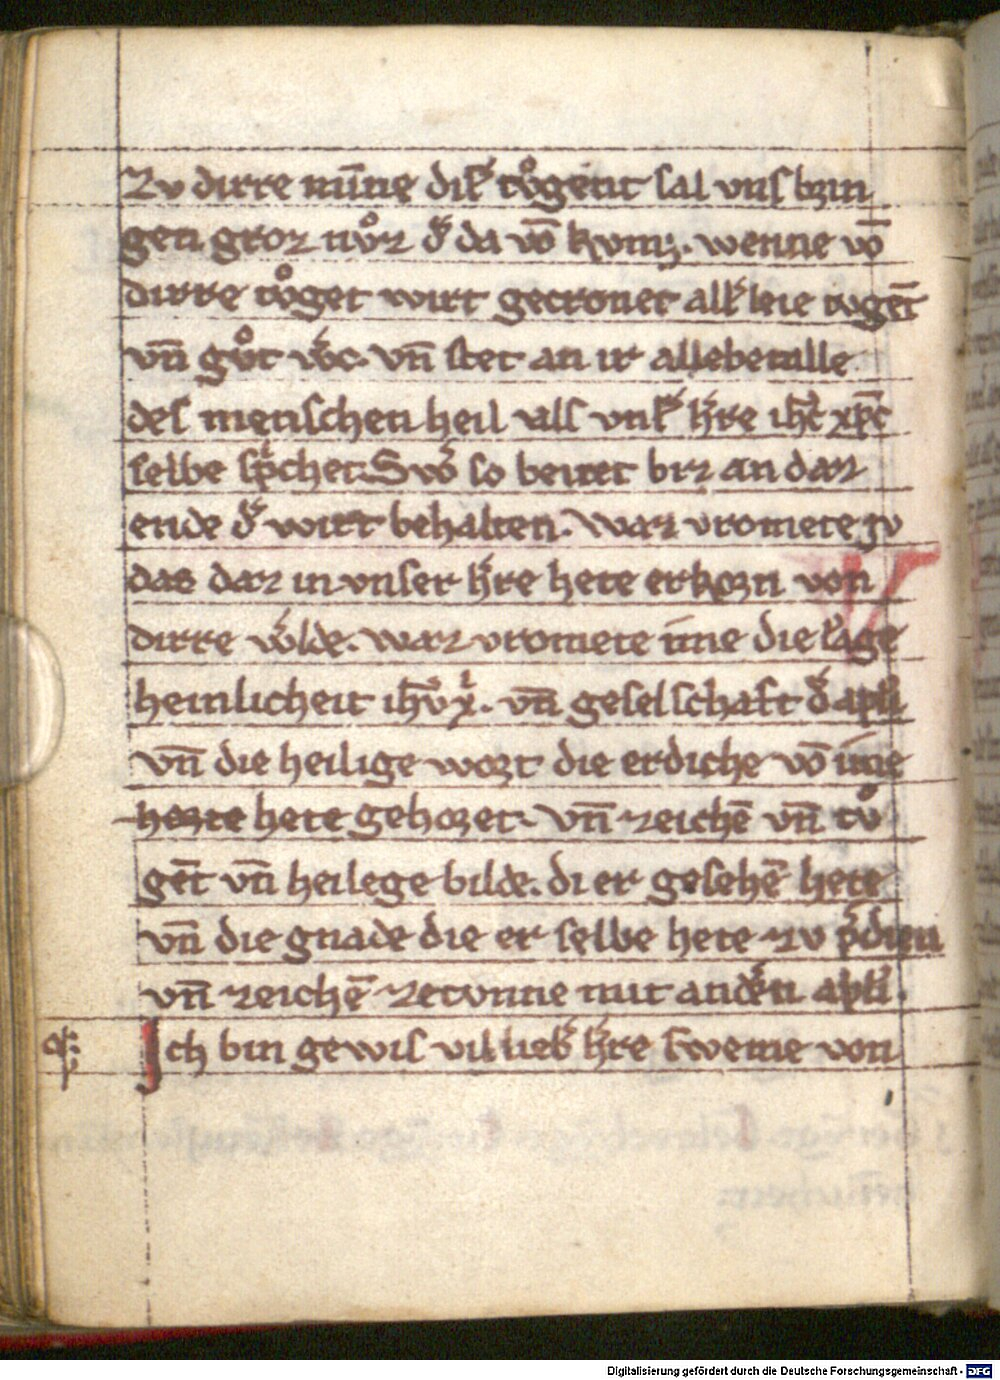 zv dirre minne dirͤ tvͦgent sal vns brin
gen groz nvͦz d͛ da vō kvmꝫ. wenne vō
dirre tvͦget wirt gecronet all͛leie tvgēt
vn̄ gvͦt w͛c. vn̄ stet an ir allebetalle
des menschen heil als vns͛ h͛re ih̄c xp̄c
selbe sp͛chet. Sw͛ so beitet biz an daz
ende d͛ wirt behalten. Waz vromete iv
das daz in vnser h͛re hete erkorn von
dirre w͛lde. waz vromete ime die lāge
heinlicheit ih̄v xͥ. vn̄ geselschaft d͛ apl̄i
vn̄ die heilige wort die er diche vō ime
horte hete gehoret. vn̄ zeichē vn̄ tvͦ
gēt vn̄ heilege bilde. di er gesehē hete
vn̄ die gnade die er selbe hete zv p͛dien
vn̄ zeichē zetvnne mit and͛n apl̄i.
Ich bin gewis vil lieb͛ h͛re swenne von
Digitalisierung gefördert durch die Deutsche Forschungsgemeinschaft - DFG